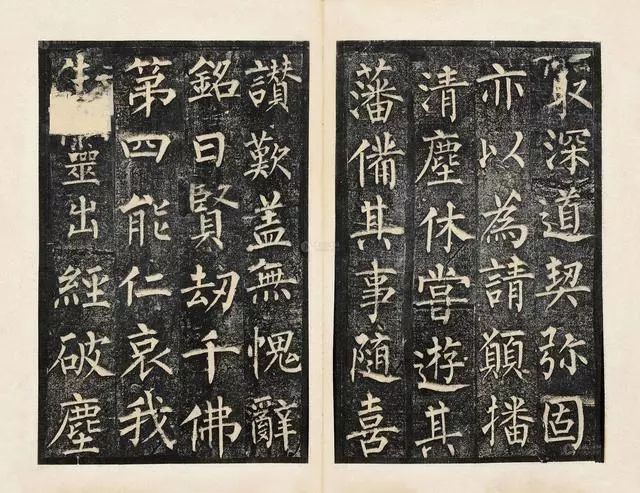 最深道契弥固
亦以為請願播
清塵休甞遊其
藩俻其事隨喜
讃歎盖無愧辭
銘曰賢劫千佛
第四能仁哀我
生靈出經破塵